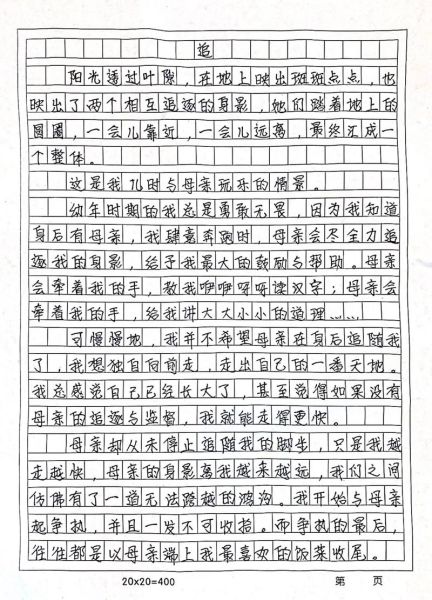 追
阳光透过叶隙，在地上映出斑斑点点，也
映出了两个相互追逐的身影，她们踏着地上的
圆圈，一会儿靠近，一会儿远离，最终汇成一
个整体。
这是我儿时与母亲玩乐的情景。
幼年时期的我总是勇敢无畏，因为我知道
身后有母亲，我肆意奔跑时，母亲会尽全力追
逐我的身影，给予我最大的鼓励与帮助。母亲
会牵着我的手，教我咿咿呀呀读汉字；母亲会
牵着我的手，给我讲大大小小的道理……
可慢慢地，我并不希望母亲在身后追随我
了，我想独自向前走，走出自己的一番天地。
我总感觉自己已经长大了，甚至觉得如果没有
母亲的追逐与监督，我就能走得更快。
母亲却从未停止追随我的脚步，只是我越
走越快，母亲的身影离我越来越远，我们之间
仿佛有了一道无法跨越的鸿沟。我开始与母亲
起争执，并且一发不可收拾。而争执的最后，
往往都是以母亲端上我最喜欢的饭菜收尾。
20x20=400 第 页